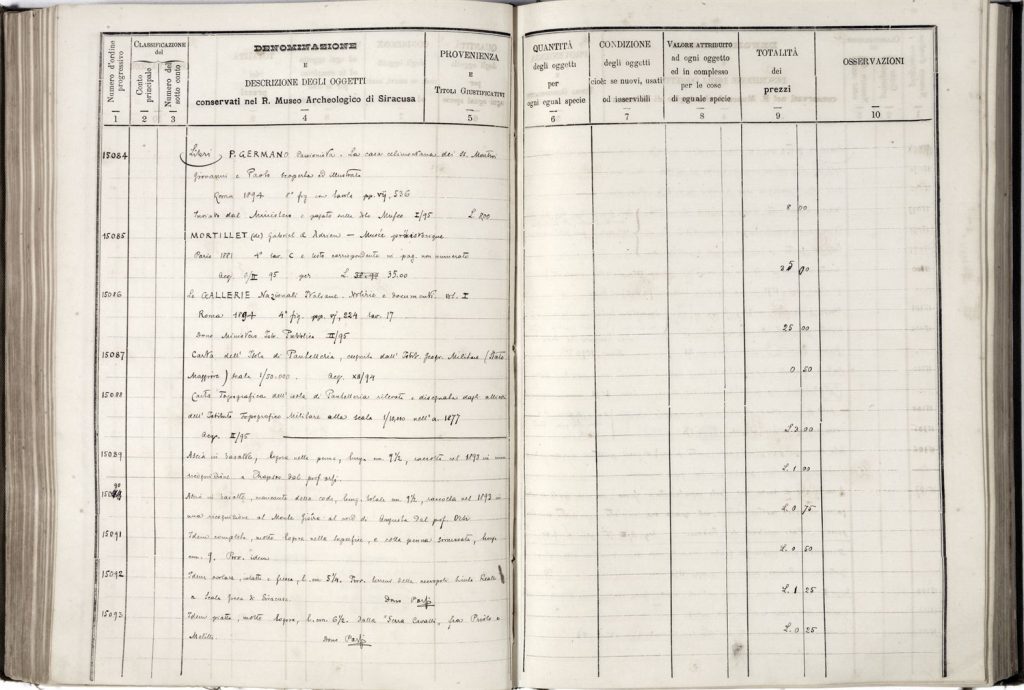 Numero d'ordine progressivo
CLASSIFICAZIONE del
Conto principale
Numero del sotto conto
DENOMINAZIONE
E
DESCRIZIONE DEGLI OGGETTI
conservati nel R. Museo Archeologico di Siracusa
PROVENIENZA
E
TITOLI GIUSTIFICATIVI
1 2 3 4 5
15084 Libri P. GERMANO Passionista. La casa celimontana dei SS. Martiri
Giovanni e Paolo scoperta ed illustrata
Roma 1894 8° fig con tavole pp. 536
Inviato dal Ministero e pagato sulla dote Museo I/95 L. 8,00
15085 MORTILLET (de) Gabriel & Adrien — Musée préhistorique
Paris 1881 4° tav. C e testo corrispondente in pag. non numerate
Acq. II 95 per L. 35.00
15086 Le GALLERIE Nazionali Italiane. Notizie e documenti. vol. I
Roma 1894 4° fig. pp. 224 tav. 17
Dono Ministero Istr. Pubblica II/95
15087 Carta dell' Isola di Pantelleria, eseguita dall' Istit. Geogr. Militare (Stato
Maggiore) scala 1/50.000. Acq. XII/94
15088 Carta Topografica dell' isola di Pantelleria rilevata e disegnata dagli allievi
dell' Istituto Topografico Militare alla scala 1/10,000 nell' a. 1877
Acq. II/95
15089 Ascia in basalto, logora nella penna, lunga cm. 9½, raccolta nel 1893 in una
ricognizione a Thapsos dal prof. Orsi.
15090 Ascia in basalto, mancante della coda, lung. totale cm. 9½, raccolta nel 1893 in
una ricognizione al Monte al nord di Augusta dal prof. Orsi
15091 Idem completa, molto logora nella superficie, e colla penna
cm. 9. Prov. idem
15092 Idem l. cm 5¼. Prov. terreni della necropoli
a Scala Greca di Siracusa. Dono
15093 Idem piatta, molto logora, l. cm. 6½. dalla Serra Cavalli, fra Priolo e
Melilli. Dono
QUANTITÀ
degli oggetti
per
ogni egual specie
CONDIZIONE
degli oggetti
cioè: se nuovi, usati
od inservibili
VALORE ATTRIBUITO
ad ogni oggetto
ed in complesso
per le cose
di eguale specie
TOTALITÀ
dei
prezzi
OSSERVAZIONI
6 7 8 9 10
8 00
35 00
25 00
0 50
L. 2 00
L. 1 00
L. 0 75
L. 0 50
L. 1 25
L. 0 25